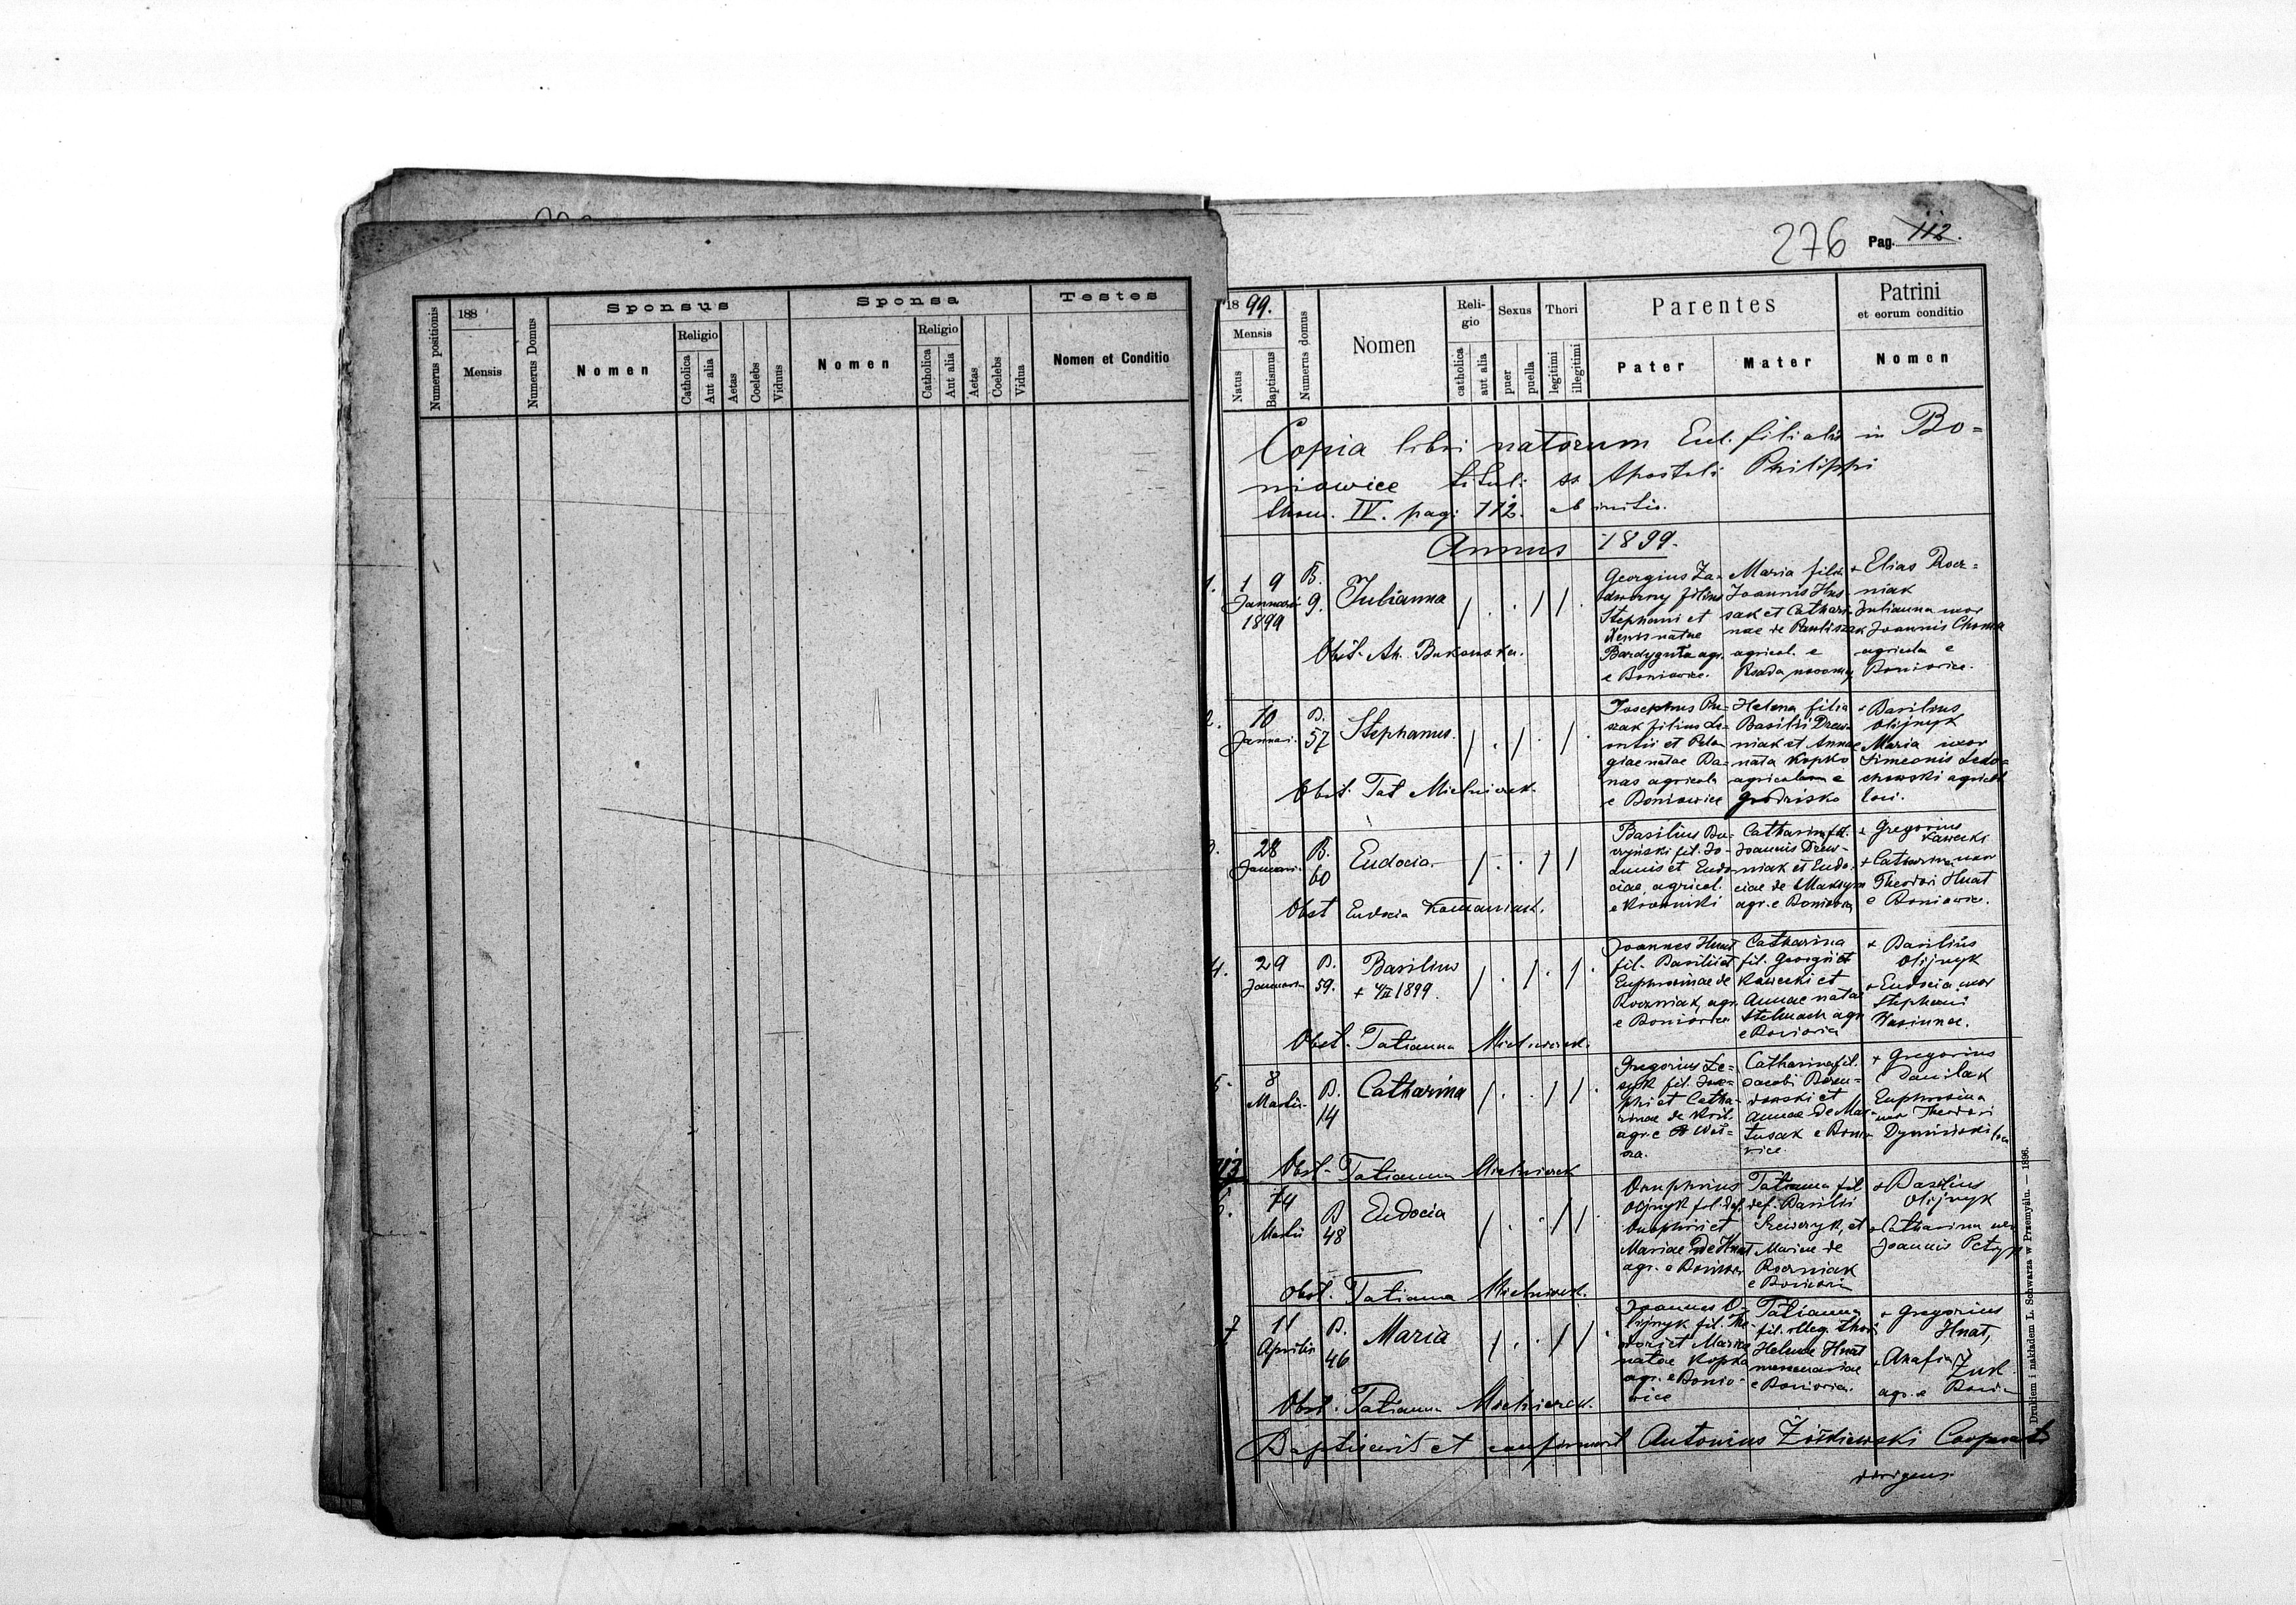 276 Pag. 112.
Numerus positionis
188
Mensis
Numerus Domus
Sponsus
Nomen
Religio
Catholica
Aut alia
Aetas
Coelebs
Viduus
Sponsa
Nomen
Religio
Catholica
Aut alia
Aetas
Coelebs
Vidua
Testes
Nomen et Conditio
1899.
Mensis
Natus
Baptismus
Numerus domus
Nomen
Reli-
gio
catholica
aut alia
Sexus
puer
puella
Thori
legitimi
illegitimi
Parentes
Pater
Mater
Patrini
et eorum conditio
Nomen
Copia libri natorum Eccl. filialis in Bo=
niowice tituli ss Apostoli Philippi
thom. IV. pag: 112. ab initio.
Annus 1899.
1.
1 9
Januarii
1899
B.
9.
Julianna
Georgius Za-
dworny filius
Stephani et
natae
agr.
e Boniowice.
Maria filia
Joannis Hus
sak et Cathari
nae de Pawliszak
agricol. e
+ Elias Rocz=
niak
Julianna uxor
Joannis
agricola e
Boniowice.
Obst. An. Bukowska.
2.
10
Januari.
B.
57
Stephanus.
Josephus
filius Le-
ontii et Pela-
giae natae Ba-
nas agricola
e Boniowice
Helena filia
Basilii Drew-
niak et Annae
nata Kopko
agricolarum e
Grodzisko
+ Basilius
Olijnyk
Maria uxor
Simeonis Ledo-
chowski agricol
loci.
Obst. Tat Mielniczek.
3.
28
Januari.
B.
60
Eudocia.
Basilius Bu-
czyński fil. Jo-
annis et Eudo
ciae, agricol.
e
Catharina fil.
Joannis Drew-
niak et Eudo-
ciae de Maksym
agr. e Boniowice
+ Gregorius
Kawecki
+ Catharina uxor
Theodori Hnat
e Boniowice.
Obst Eudocia
4.
29
Januarii
B.
59.
Basilius
+ 4/II 1899.
Joannes Hnat
fil. Basilii et
Euphrosinae de
Roczniak, agr.
e Boniowice
Catharina
fil. Georgii et
Kawecki et
Annae natae
Stelmach agr
e Boniowice
+ Basilius
Olijnyk
+ Eudocia uxor
Stephani
Obst. Tatianna Mielniczek.
5.
8
Martii.
B.
14
Catharina
Gregorius Le-
fil. Jose-
phi et Catha-
rinae de
agr. e
Catharina fil.
Jacobi
et
Annae de
e Bonio
wice
+ Gregorius
Danilak
Euphrosina
uxor Theodori
Dyminski loci
Obst. Tatianna Mielniczek
6.
14
Martii
B
48
Eudocia
Onuphrius
Olijnyk fil. def.
Onuphrii et
Mariae de Hnat
agr. e Boniowice
Tatianna fil
def. Basilii
Szewczyk, et
Mariae de
Roczniak
e Boniowice
+ Basilius
Olijnyk
+ Catharina uxor
Joannis
Obst. Tatianna Mielniczek.
7
11
Aprilis
B.
46
Maria
Joannes O-
lijnyk fil. The-
odori et Mariae
natae Kopka
agr. e Bonio-
wice
Tatianna
fil. illeg. thori
Helenae Hnat
e Boniowice.
+ Gregorius
Hnat,
+ Anafia
Żuk
agr. e
Obst. Tatianna Mielniczek.
Baptisavit et confirmavit Antonius Żółkiewski Cooperat
dirigens.
Drukiem i nakładem L. Schwarza w Przemyślu. — 1896.